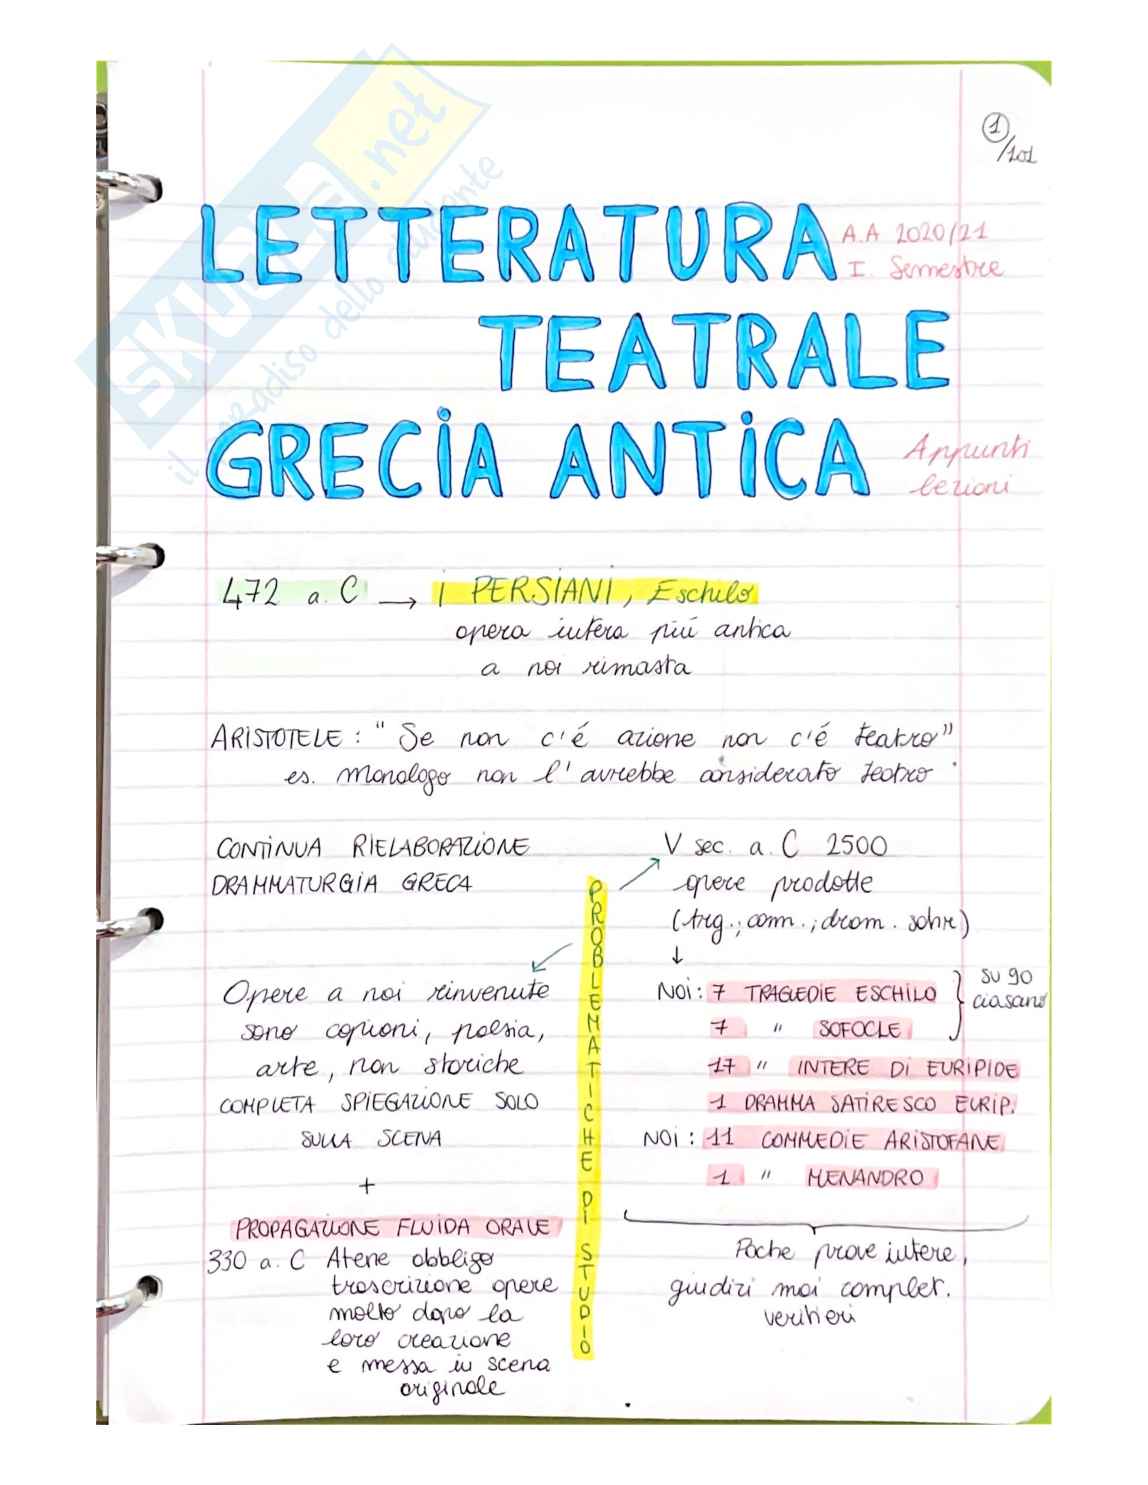 SKUOLA.net
il paradiso dello studente
1
/101
LETTERATURA
A.A 2020/21
I. Semestre
TEATRALE
GRECIA ANTICA
Appunti
lezioni
472 a.C → I PERSIANI, Eschilo
opera intera piú antica
a noi rimasta
ARISTOTELE: "Se non c'é azione non c'é teatro"
es. monologo non l'avrebbe considerato teatro
CONTINUA RIELABORAZIONE
DRAMMATURGIA GRECA
PROBLEMATICHE DI STUDIO
Opere a noi rinvenute
sono copioni, poesia,
arte, non storiche
COMPLETA SPIEGAZIONE SOLO
SULLA SCENA
+
PROPAGAZIONE FLUIDA ORALE
330 a.C Atene obbligo
trascrizione opere
molto dopo la
loro creazione
e messa in scena
originale
V sec. a.C 2500
opere prodotte
(trg.; com.; dram. satir)
↓
NOI: 7 TRAGEDIE ESCHILO
7 " SOFOCLE
su 90
ciasano
17 " INTERE DI EURIPIDE
1 DRAMMA SATIRESCO EURIP.
NOI: 11 COMMEDIE ARISTOFANE
1 " MENANDRO
Poche prove intere,
giudizi mai complet.
veritieri